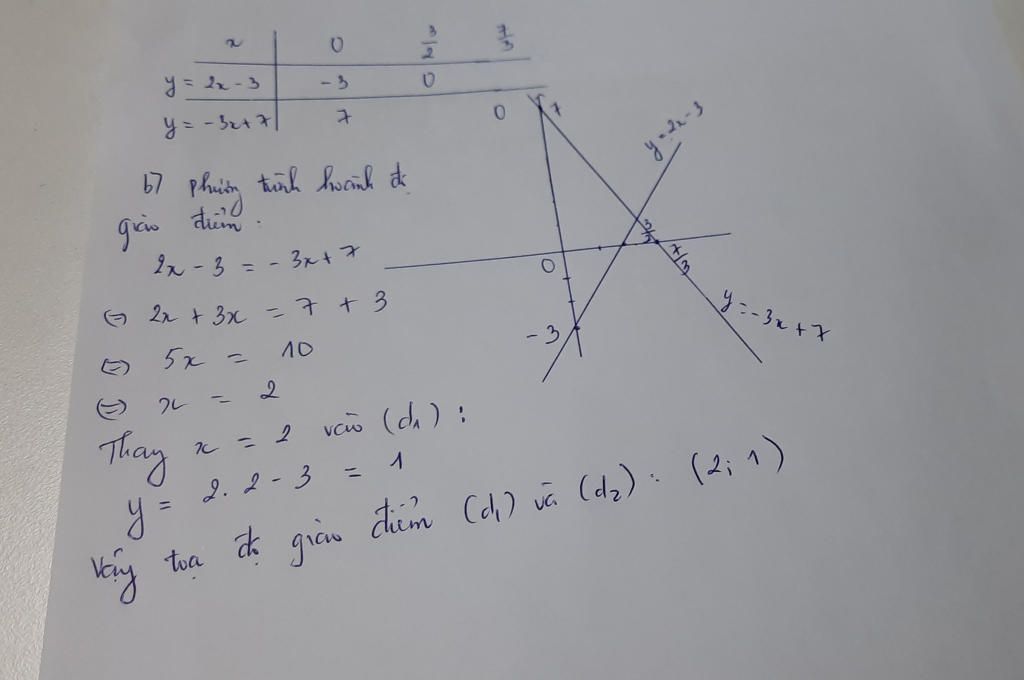 x 0 3/2 7/3
y = 2x - 3 -3 0
y = -3x + 7 7 0
b) phương trình hoành độ
giao điểm:
2x - 3 = - 3x + 7
⇔ 2x + 3x = 7 + 3
⇔ 5x = 10
⇔ x = 2
Thay x = 2 vào (d1) :
y = 2. 2 - 3 = 1
Vậy toạ độ giao điểm (d1) và (d2) : (2; 1)
7
y = 2x - 3
0
3/2
7/3
-3
y = -3x + 7